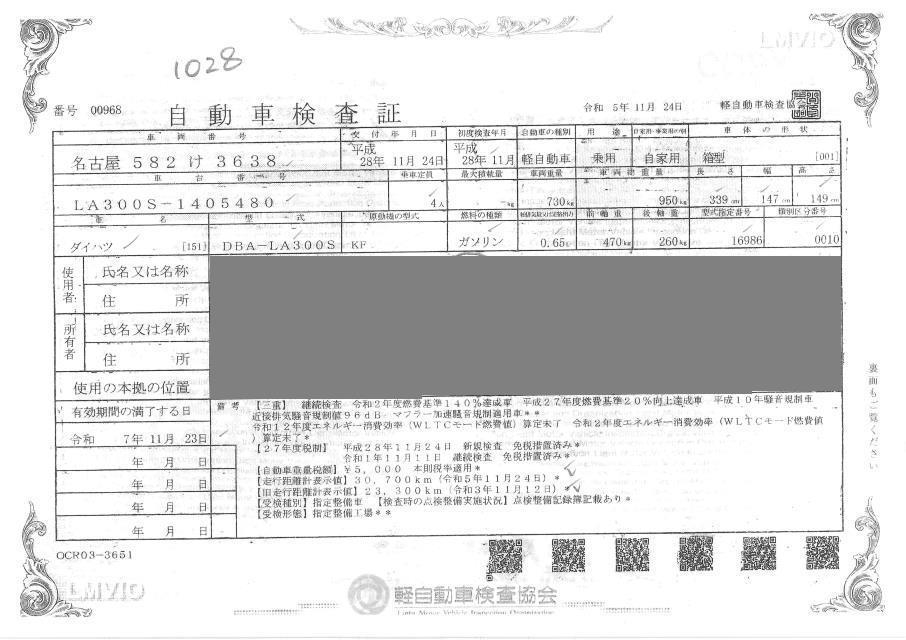 1028
LMVIO
番号 00968 自動車検査証 令和 5年11月 24日 軽自動車検査協会
車両番号 交付年月日 初度検査年月 自動車の種別 用途 自家用・事業用の別 車体の形状
名古屋 582 け 3638 平成 28年 11月 24日 平成 28年 11月 軽自動車 乗用 自家用 箱型 [001]
車台番号 乗車定員 最大積載量 車両重量 車両総重量 長さ 幅 高さ
LA300S-1405480 4人 -kg 730kg 950kg 339cm 147cm 149cm
車名 型式 原動機の型式 燃料の種類 前軸重 後軸重 型式指定番号 類別区分番号
ダイハツ [151] DBA-LA300S KF ガソリン 0.65L 470kg 260kg 16986 0010
使用者 氏名又は名称
住所
所有者 氏名又は名称
住所
使用の本拠の位置
有効期間の満了する日
令和 7年 11月 23日
年 月 日
年 月 日
年 月 日
年 月 日
備考 【三重】 継続検査 令和2年度燃費基準140%達成車 平成27年度燃費基準20%向上達成車 平成10年騒音規制車
近接排気騒音規制値96dB マフラー加速騒音規制適用車**
令和12年度エネルギー消費効率(WLTCモード燃費値)算定未了 令和2年度エネルギー消費効率(WLTCモード燃費値
)算定未了*
【27年度税制】 平成28年11月24日 新規検査 免税措置済み*
令和1年11月11日 継続検査 免税措置済み*
【自動車重量税額】¥5,000 本則税率適用*
【走行距離計表示値】30,700km(令和5年11月24日)*
【旧走行距離計表示値】23,300km(令和3年11月12日)*
【受検種別】指定整備車 【検査時の点検整備実施状況】点検整備記録簿記載あり*
【受検形態】指定整備工場**
裏面もご覧ください
OCR03-3651
LMVIO
軽自動車検査協会
Light Motor Vehicle Inspection Organization